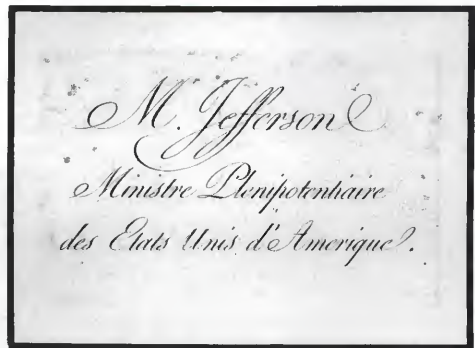 M. Jefferson
Ministre Plenipotentiaire
des Etats Unis d'Amerique.